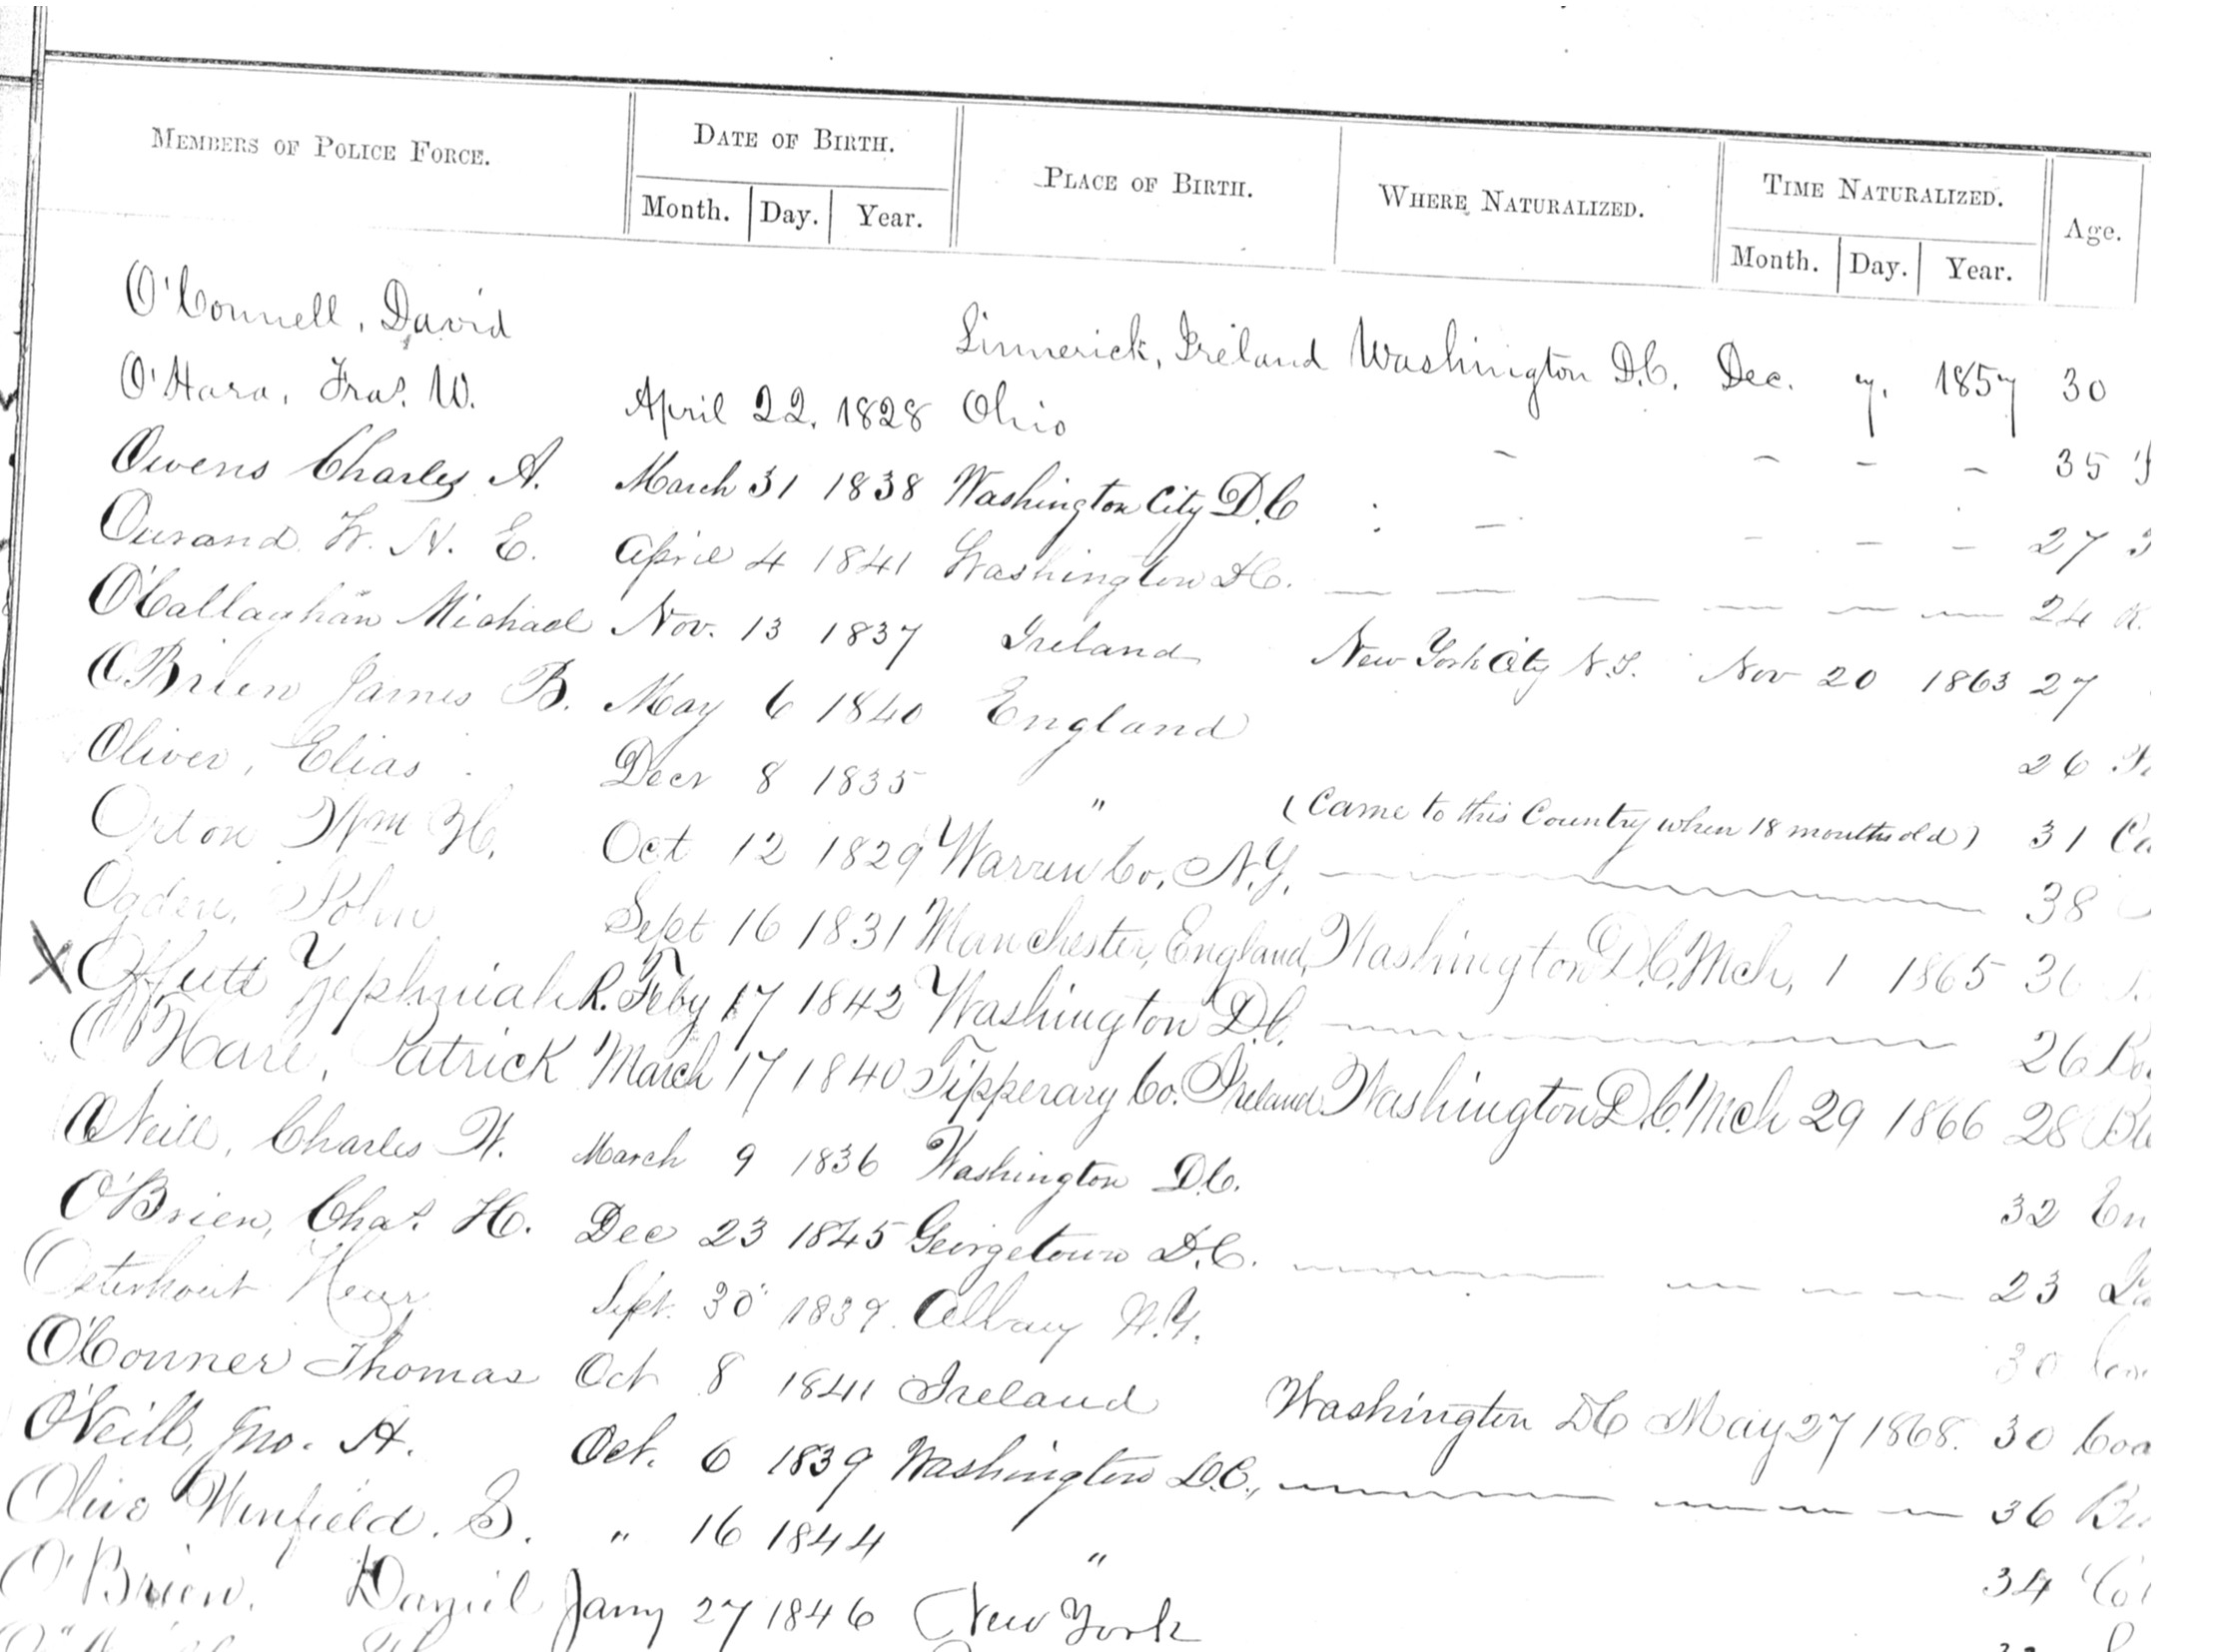 MEMBERS OF POLICE FORCE. DATE OF BIRTH. PLACE OF BIRTH. WHERE NATURALIZED. TIME NATURALIZED. Age.
Month. Day. Year. Month. Day. Year.
O'Connell, David Limerick, Ireland Washington D.C. Dec. 7, 1857 30
O'Hara, Fras. W. April 22. 1828 Ohio - - - - 35
Owens Charles A. March 31 1838 Washington City D.C - - - - 27
Ourand W. N. E. April 4 1841 Washington D.C. — — — — — — 24
O'Callaghan Michael Nov. 13 1837 Ireland New York City N.Y. Nov 20 1863 27
O'Brien James B. May 6 1840 England 26
Oliver, Elias Decr 8 1835 " (Came to this Country when 18 months old) 31
Orton Wm H. Oct 12 1829 Warren Co, N.Y. — 38
Ogden, John Sept 16 1831 Manchester, England, Washington D.C. Mch, 1 1865 36
X Offutt Zephniah R. Feby 17 1842 Washington D.C. — 26
O'Hare, Patrick March 17 1840 Tipperary Co. Ireland Washington D.C. Mch 29 1866 28
O'Neill, Charles W. March 9 1836 Washington D.C. 32
O'Brien, Chas. H. Dec 23 1845 Georgetown D.C. — — — — 23
Osterhout Sept. 30 1839. Albany N.Y. 30
O'Conner Thomas Oct 8 1841 Ireland Washington DC May 27 1868. 30
O'Neill, Jno. A. Oct. 6 1839 Washington D.C., — — — — 36
Olive Winfield. S. " 16 1844 " 34
O'Brien, Daniel Jany 27 1846 New York